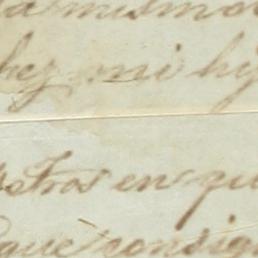 a mismo
mi hij
stros en qu
que consig